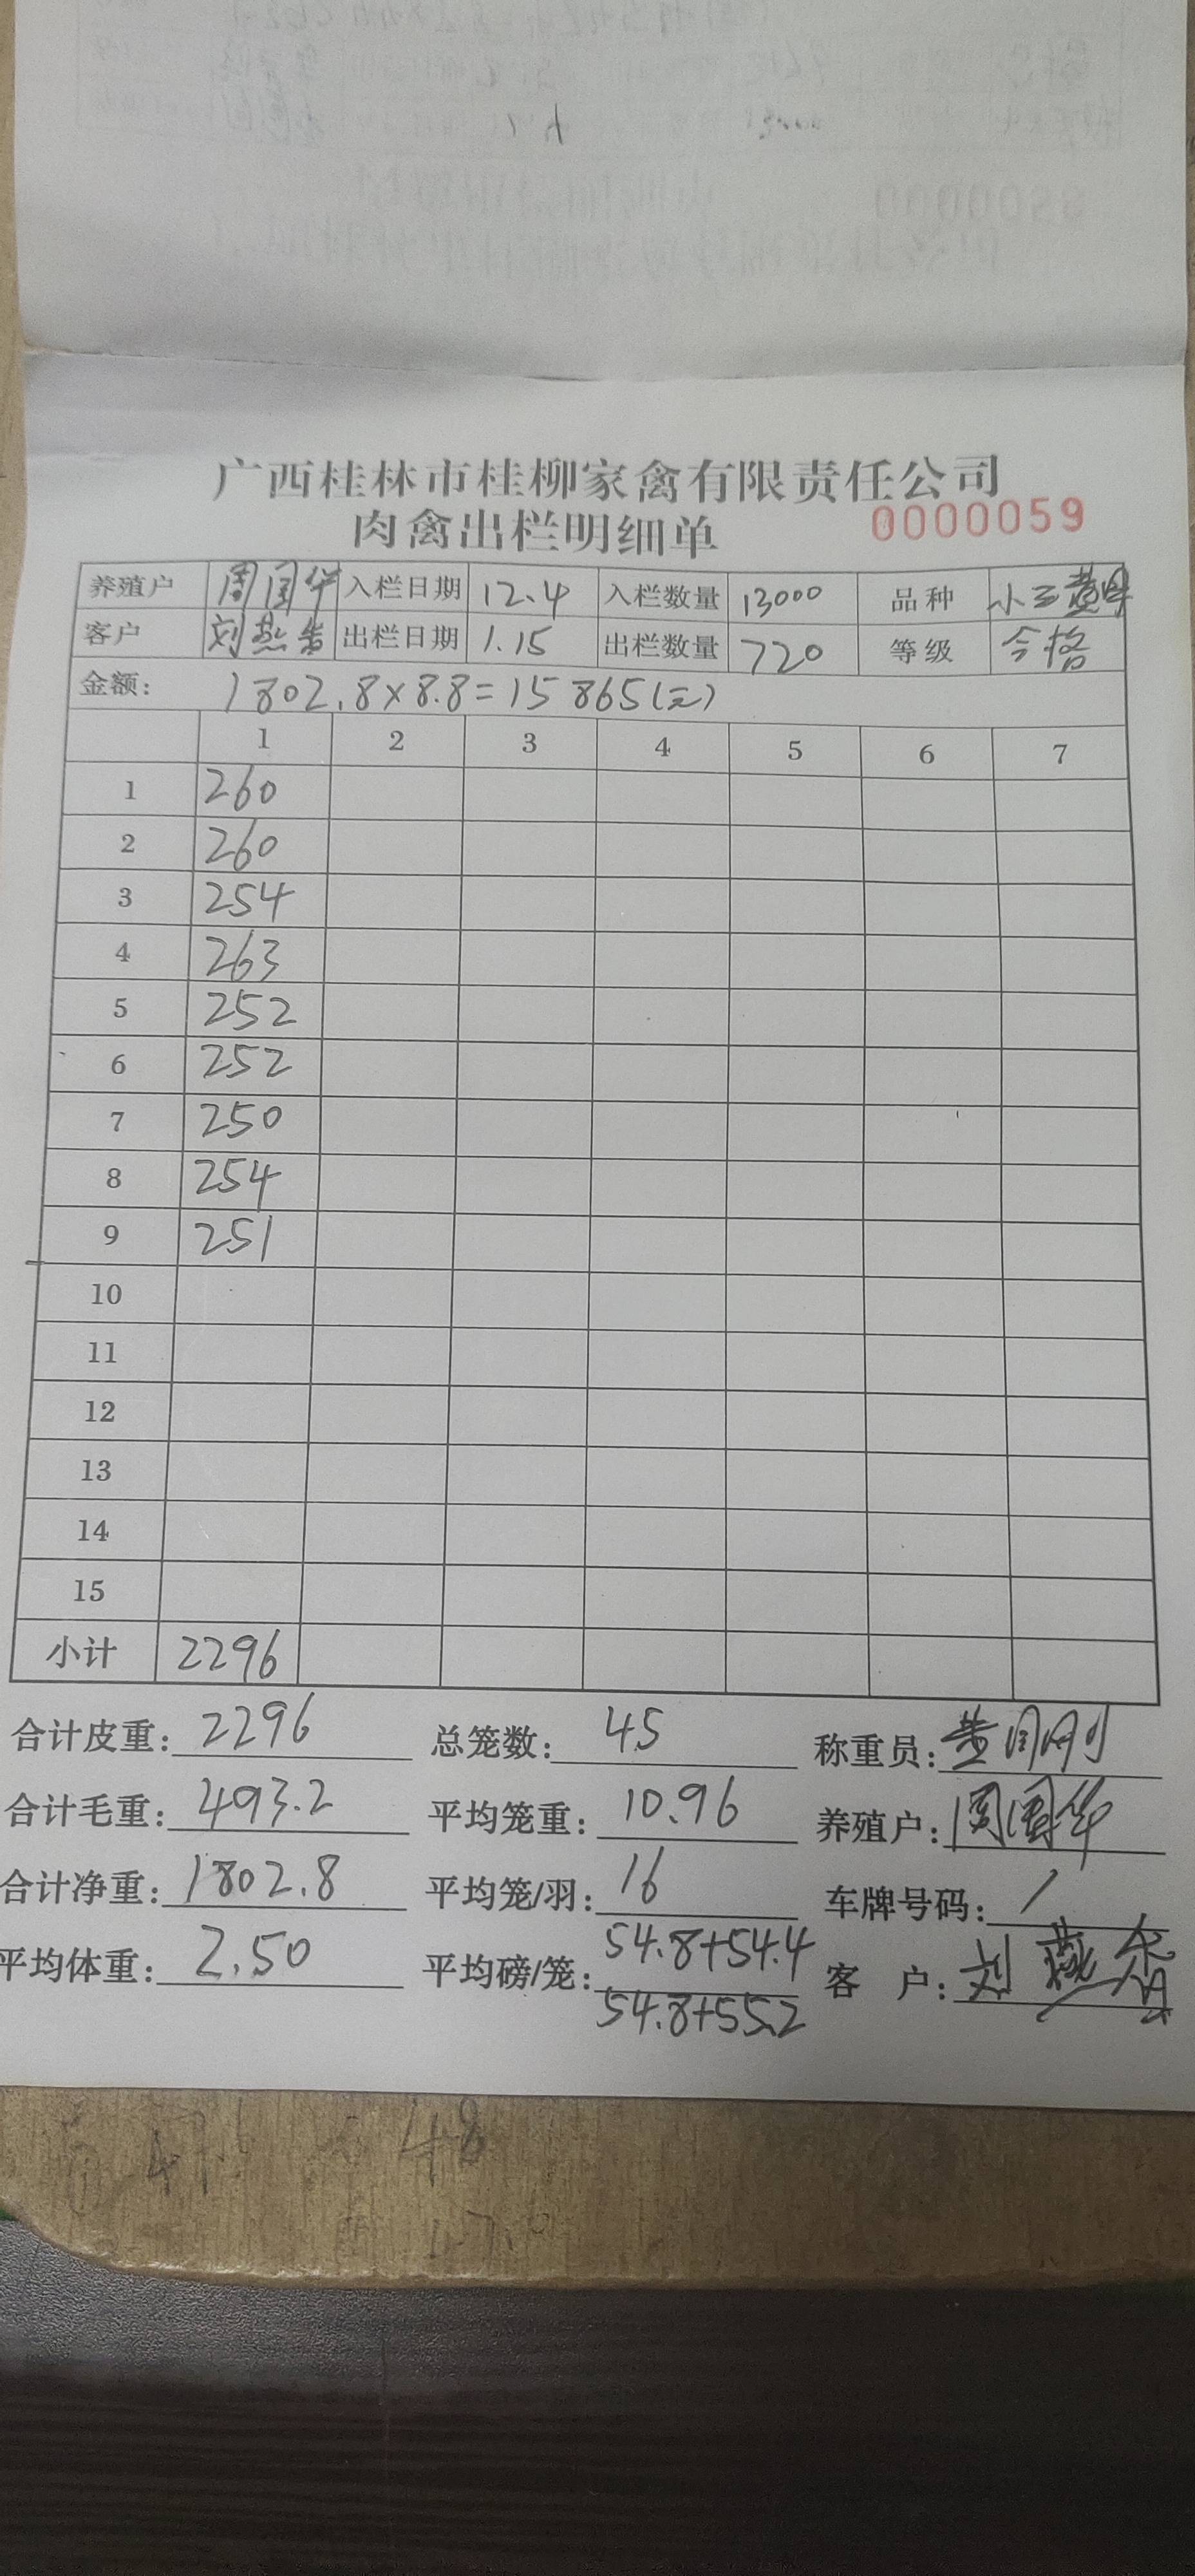 广西桂林市桂柳家禽有限责任公司
肉禽出栏明细单 0000059
养殖户 周国华 入栏日期 12.4 入栏数量 13000 品种 小三黄母
客户 刘燕香 出栏日期 1.15 出栏数量 720 等级 合格
金额: 1802.8×8.8=15865(元)
1 2 3 4 5 6 7
1 260
2 260
3 254
4 263
5 252
6 252
7 250
8 254
9 251
10
11
12
13
14
15
小计 2296
合计皮重: 2296 总笼数: 45 称重员:
合计毛重: 493.2 平均笼重: 10.96 养殖户: 周国华
合计净重: 1802.8 平均笼/羽: 16 车牌号码: /
平均体重: 2.50 平均磅/笼: 54.8+54.4 客 户: 刘燕香
54.8+55.2